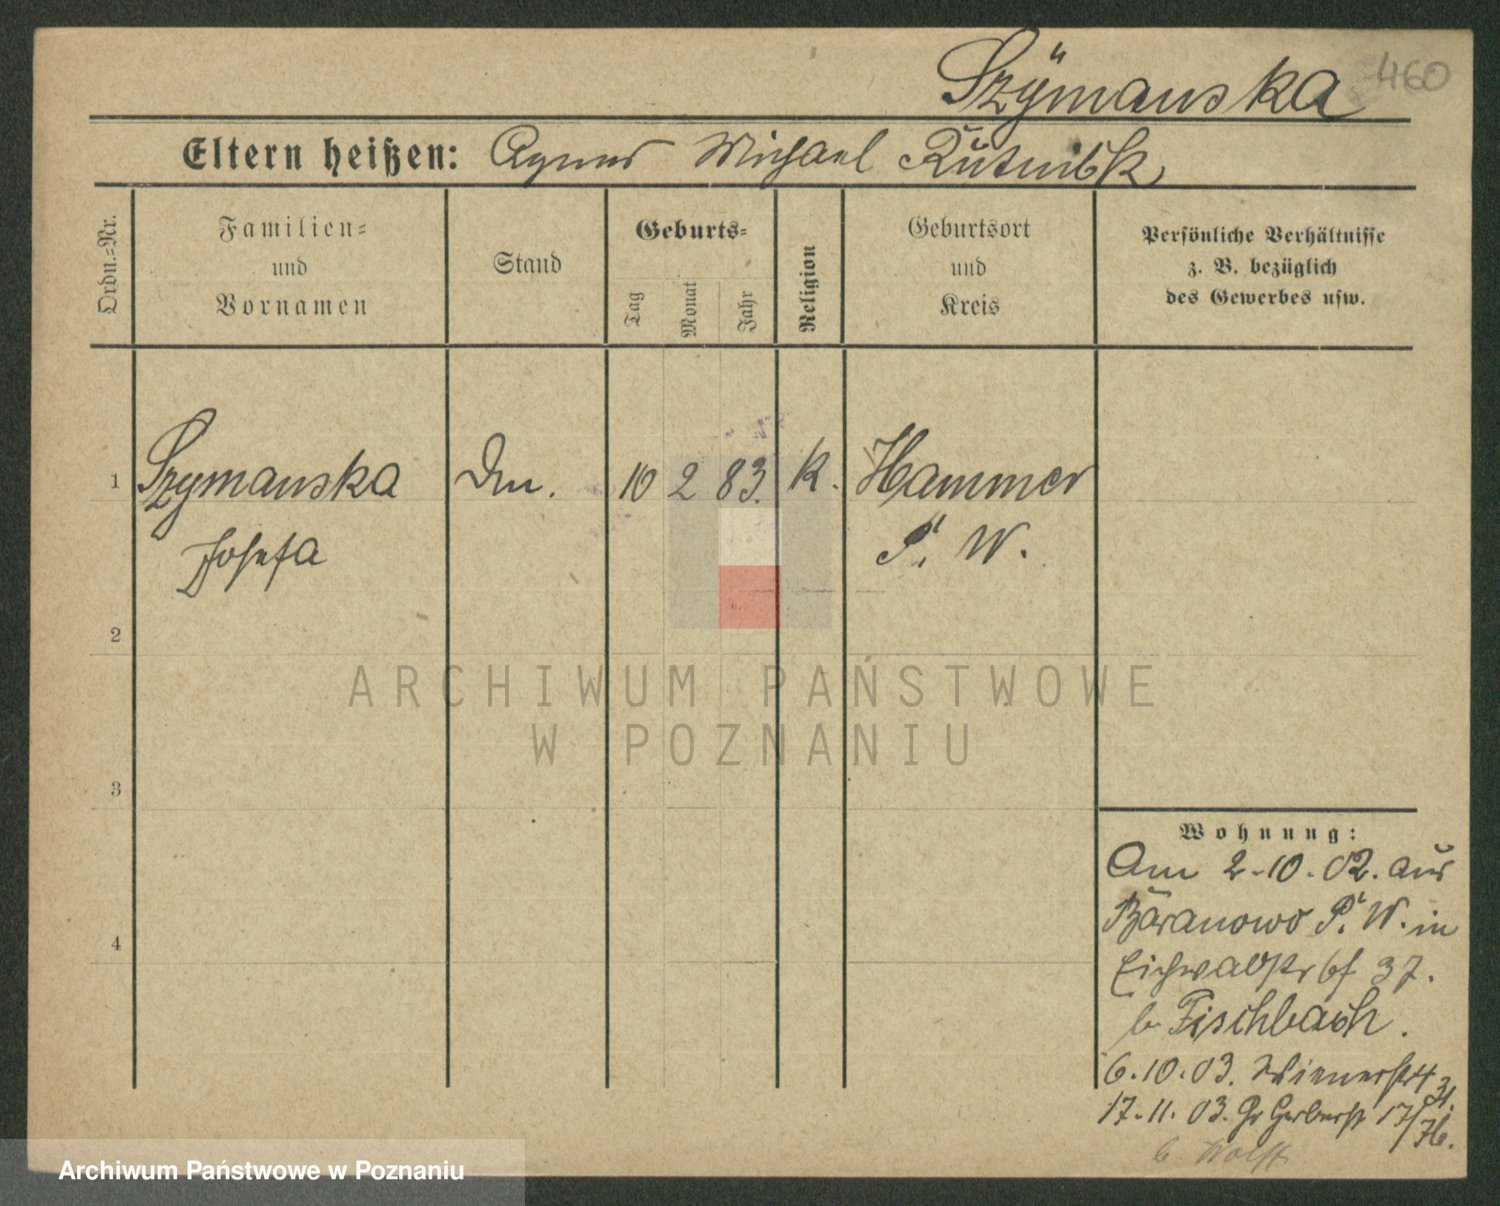 Szÿmanska 460
Eltern heißen: Agnes Michael
Ordn.-Nr.
Familien-
und
Vornamen
Stand
Geburts-
Tag
Monat
Jahr
Religion
Geburtsort
und
Kreis
Persönliche Verhältnisse
z. B. bezüglich
des Gewerbes usw.
1 Szymanska Dm. 10 2 83. k. Hammer
Josefa P. W.
2
ARCHIWUM PAŃSTWOWE
W POZNANIU
3
Wohnung:
Am 2-10.02. aus
Baranowo P. W. in
Eichwaldstr 37.
b Fischbach.
4
6.10.03. Wienerstr 4 31.
17.11.03. Gr Gerberst 17/
b. Wolff
Archiwum Państwowe w Poznaniu